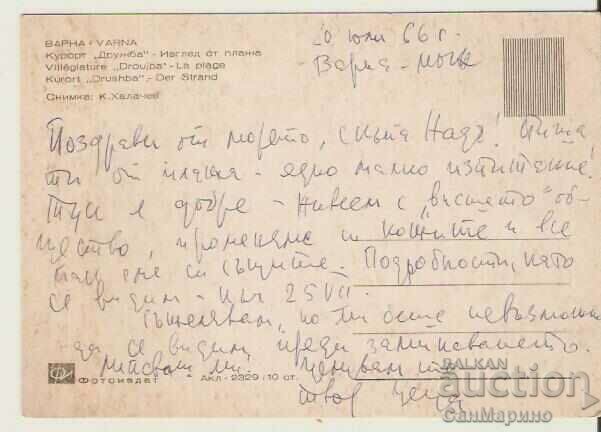 ВАРНА • VARNA
Курорт „Дружба" - Изглед от плажа
Villégiature „Droujba" - La plage
Kurort „Drushba" - Der Strand
Снимка: К. Халачев
20 юли 66 г.
Варна -
Поздрави от морето, скъпа Надь! Пиша
ти от плажа - едно малко изпитание!
Тук е добре - живеем с „висшето" об-
щество, променяме си кожите и все
пак сме си същите. Подробности, като
се видим - към 25 VII.
Съжалявам, но ти беше невъзможно
да се видим преди заминаването.
ми. Целувам те
твоя
Фотоиздат
Акл - 2329 / 10 ст.
BALKAN
auction
СанМарино